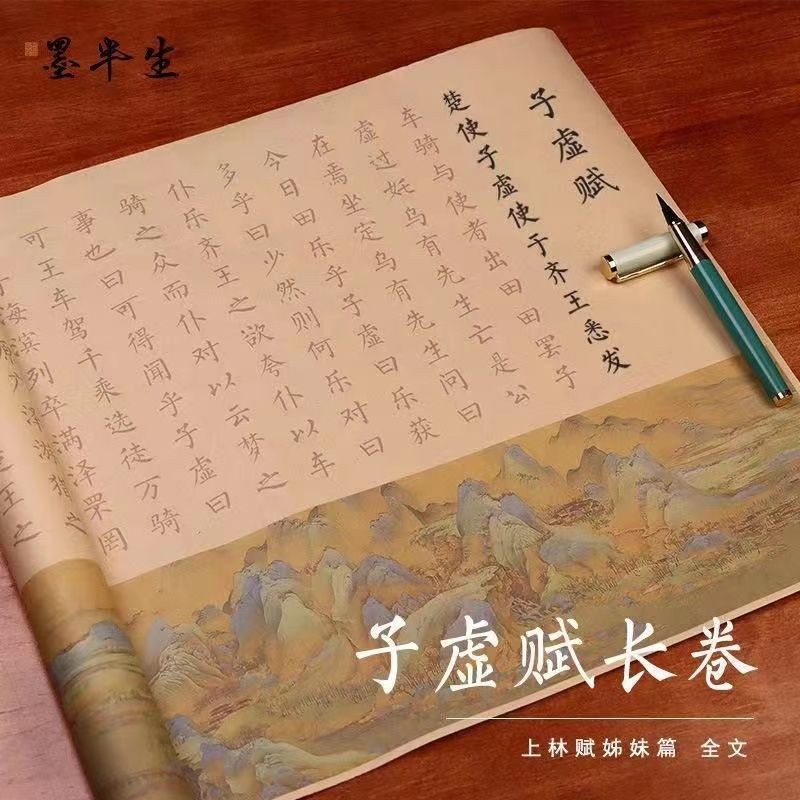 墨半生
子虚赋
楚使子虚使于齐王悉发
车骑与使者出田田罢子
虚过奼乌有先生亡是公
在焉坐定乌有先生问曰
今日田乐乎子虚曰乐获
多乎曰少然则何乐对曰
仆乐齐王之欲夸仆以车
骑之众而仆对以云梦之
事也曰可得闻乎子虚曰
可王车驾千乘选徒万骑
于海滨列卒满泽罘罔
王之
子虚赋长卷
上林赋姊妹篇 全文